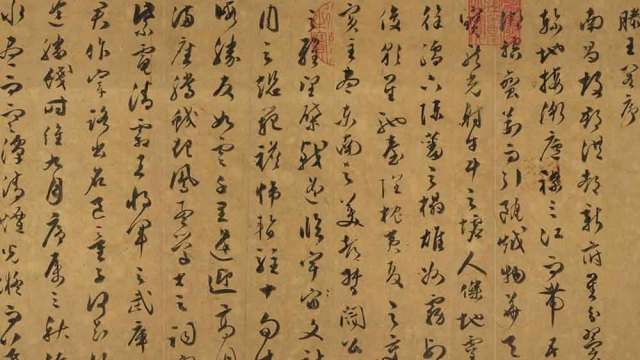 滕王閣序
南昌故郡洪都新府星分翼
軫地接衡廬襟三江而帶五
湖控蠻荊而引甌越物華天
寶龍光射牛斗之墟人傑地靈
徐孺下陳蕃之榻雄州霧列
俊彩星馳臺隍枕夷夏之交
賓主盡東南之美都督閻公
之雅望棨戟遙臨宇文新
州之懿範襜帷暫駐十旬休
暇勝友如雲千里逢迎高朋
滿座騰蛟起鳳孟學士之詞宗
紫電清霜王將軍之武庫
君作宰路出名區童子何知
逢勝餞時維九月序屬三秋
水盡而寒潭清煙光凝而暮